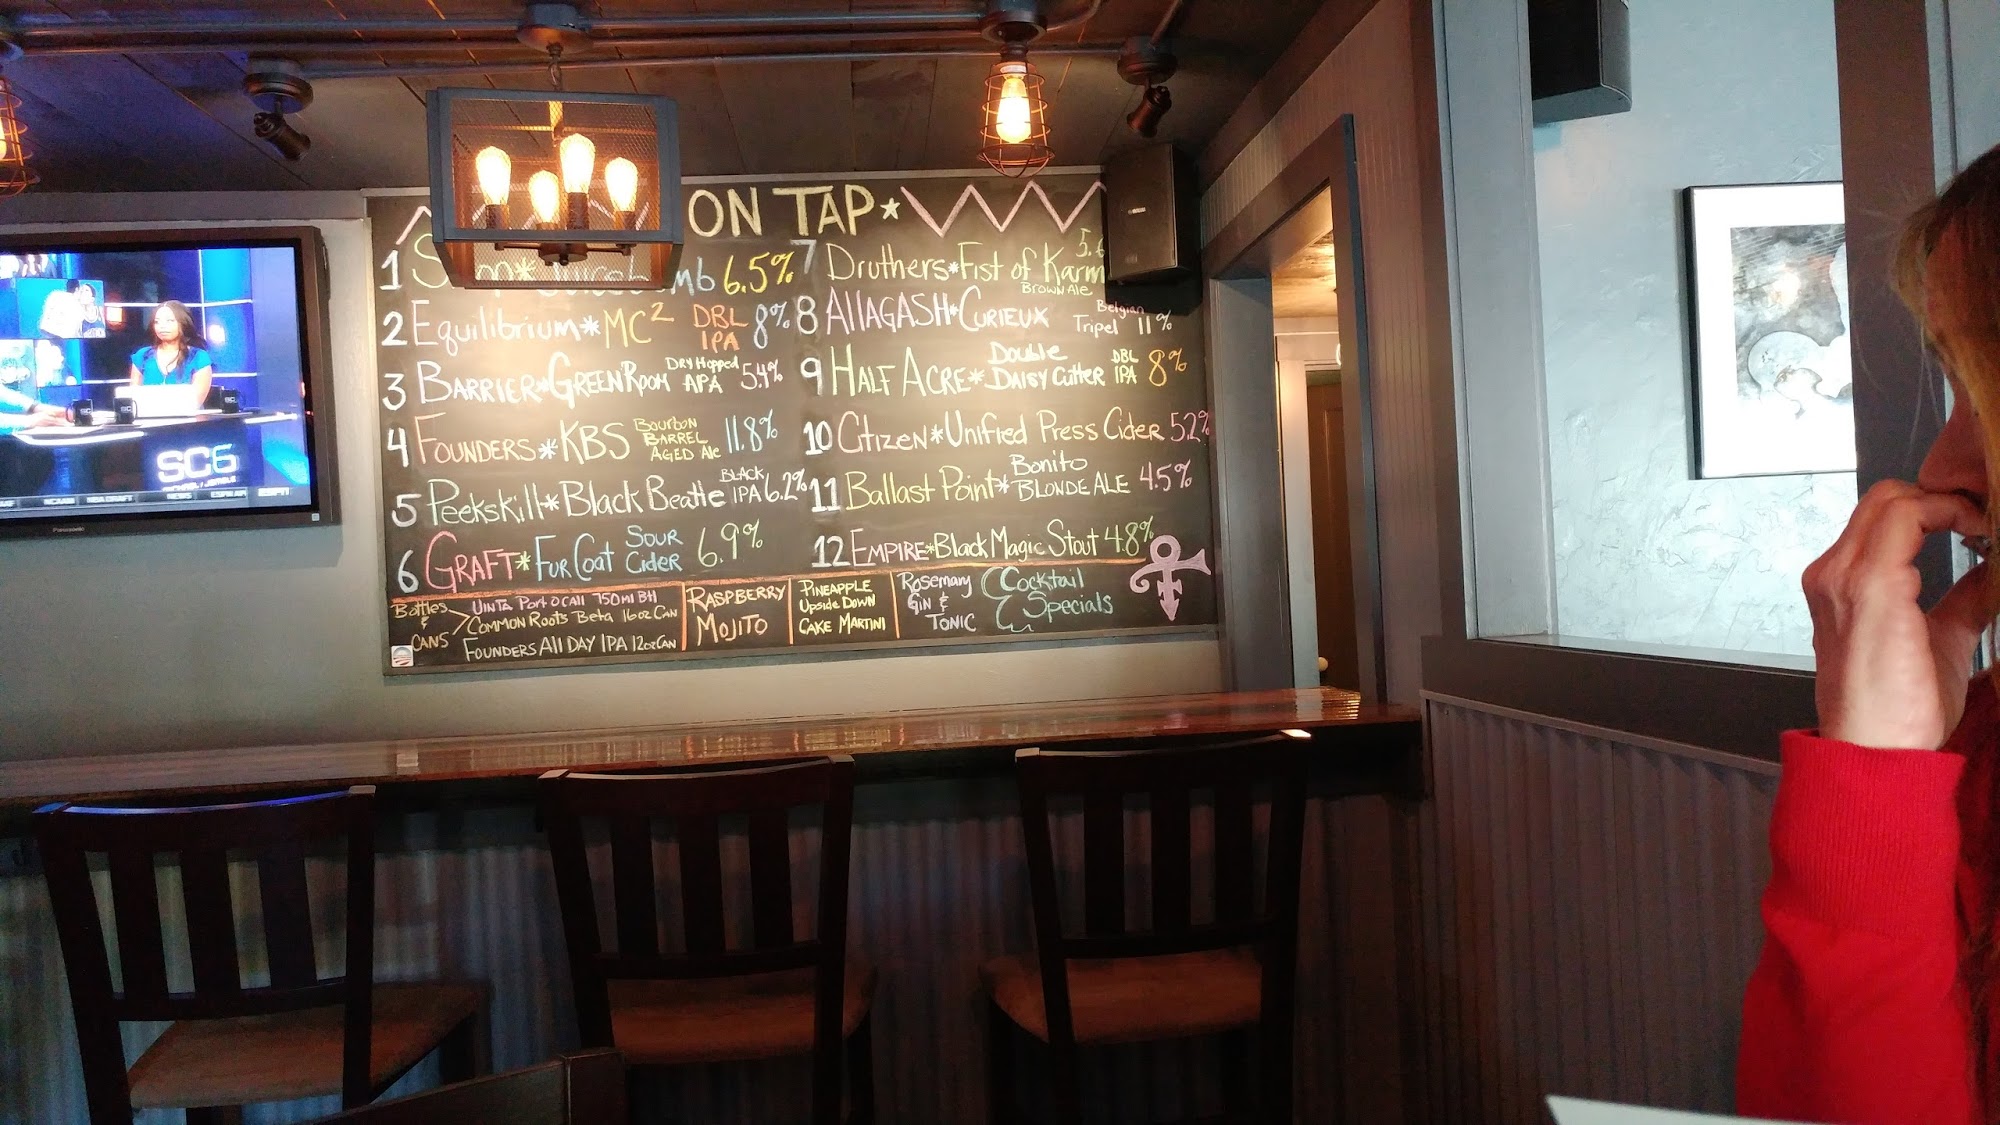 ON TAP
1 6.5%
2 Equilibrium*MC² DBL IPA 8%
3 BARRIER*GREEN ROOM Dry Hopped APA 5.4%
4 FOUNDERS*KBS Bourbon BARREL AGED Ale 11.8%
5 Peekskill*Black Beatle BLACK IPA 6.2%
6 GRAFT*Fur Coat SOUR Cider 6.9%
7 Druthers*Fist of Karm Brown Ale 5.6
8 AllAGASH*Curieux Belgian Tripel 11%
9 HALF ACRE*Double Daisy Cutter DBL IPA 8%
10 Citizen*Unified Press Cider 5.2%
11 Ballast Point*Bonito BLONDE ALE 4.5%
12 EMPIRE*Black Magic Stout 4.8%
Bottles & CANS
UINTA Port O Call 750ml Btl
COMMON Roots Beta 16oz CAN
FOUNDERS All DAY IPA 12oz CAN
RASPBERRY MOJITO
PINEAPPLE Upside DOWN CAKE MARTINI
Rosemary GIN & TONIC
Cocktail Specials
SC6
NCAAM NBA DRAFT NEWS ESPN
Panasonic